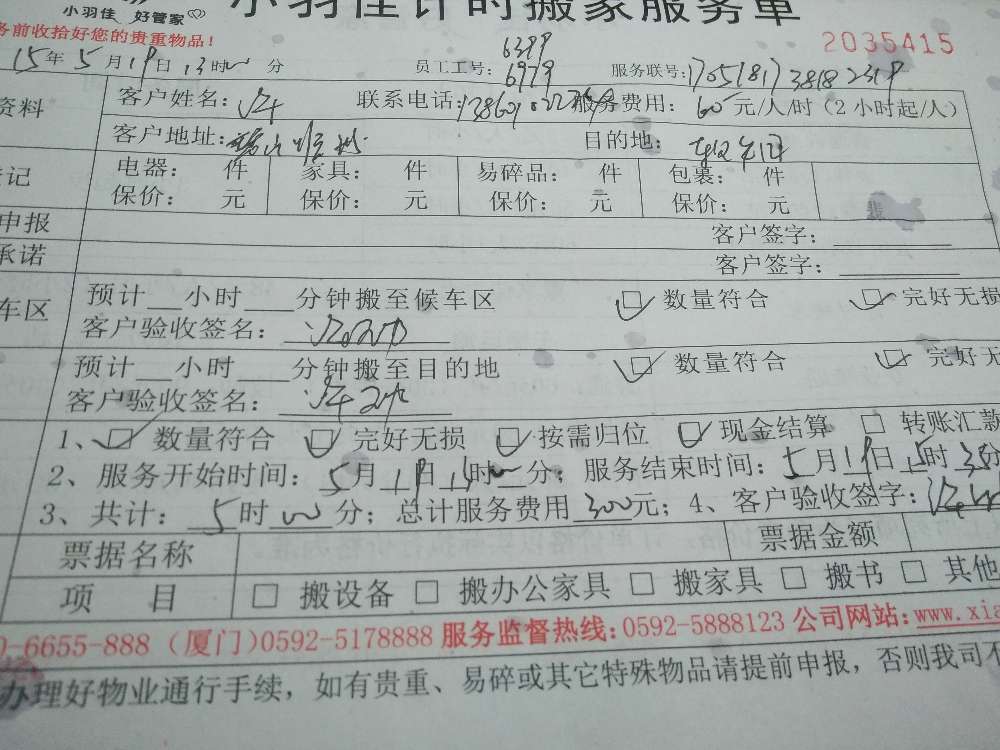 小羽佳 好管家
小羽佳计时搬家服务单
务前收拾好您的贵重物品!
2035415
15年5月19日13时00分 员工工号: 6399 6979 服务联号:
资料 客户姓名: 联系电话: 服务费用: 60元/人/时(2小时起/人)
客户地址: 目的地:
记 电器: 件 家具: 件 易碎品: 件 包裹: 件
保价: 元 保价: 元 保价: 元 保价: 元
申报 客户签字:
承诺 客户签字:
车区 预计__小时___分钟搬至候车区 数量符合 完好无损
客户验收签名:
预计__小时___分钟搬至目的地 数量符合 完好无
客户验收签名:
1、 数量符合 完好无损 按需归位 现金结算 转账汇款
2、服务开始时间: 5月19日13时00分; 服务结束时间: 5月19日15时35分
3、共计: 5时00分; 总计服务费用300元; 4、客户验收签字:
票据名称 票据金额
项 目 搬设备 搬办公家具 搬家具 搬书 其他
0-6655-888 (厦门)0592-5178888 服务监督热线: 0592-5888123 公司网站: www.xia
办理好物业通行手续,如有贵重、易碎或其它特殊物品请提前申报,否则我司不